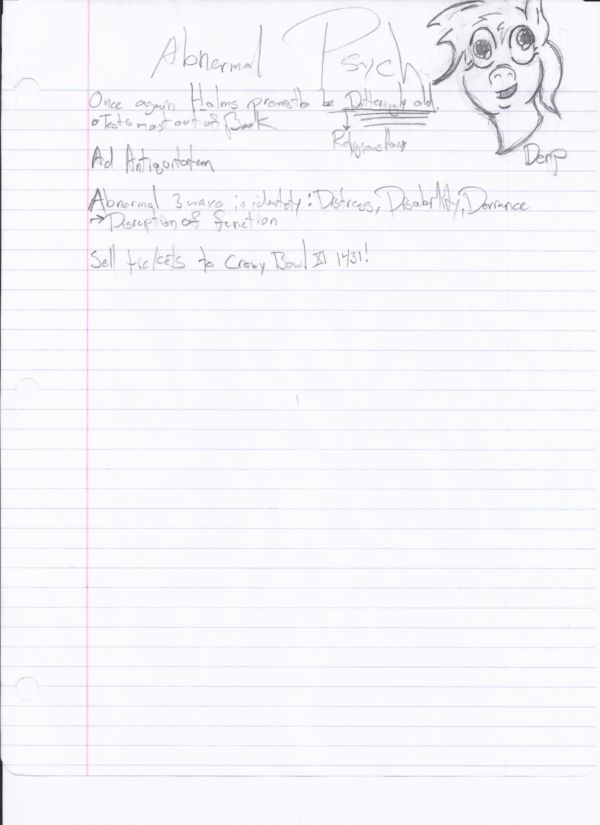 Abnormal Psych
Once again Holms proves to be Dotteringly old
• Tests most out of Book
Religious
Derp
Ad Antiquitatem
Abnormal 3 ways in identity: Distress, Disability, Deviance
→ Disruption of function
Sell tickets to Crazy Bowl XI 1431!